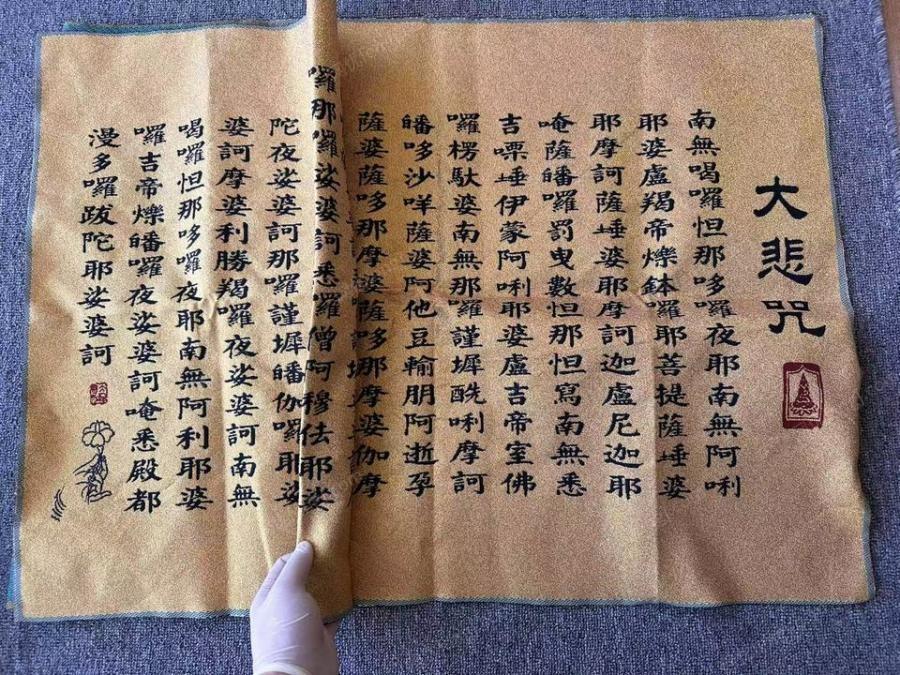 大悲咒
南無喝囉怛那哆囉夜耶南無阿唎
耶婆盧羯帝爍鉢囉耶菩提薩埵婆
耶摩訶薩埵婆耶摩訶迦盧尼迦耶
唵薩皤囉罰曳數怛那怛寫南無悉
吉嘌埵伊蒙阿唎耶婆盧吉帝室佛
囉楞馱婆南無那囉謹墀醯唎摩訶
皤哆沙咩薩婆阿他豆輸朋阿逝孕
薩婆薩哆那摩婆薩多那摩婆伽摩
囉那囉娑婆訶悉囉僧阿穆佉耶娑
陀夜娑婆訶那囉謹墀皤伽囉耶娑
婆訶摩婆利勝羯囉夜娑婆訶南無
喝囉怛那哆囉夜耶南無阿利耶婆
囉吉帝爍皤囉夜娑婆訶唵悉殿都
漫多囉跋陀耶娑婆訶